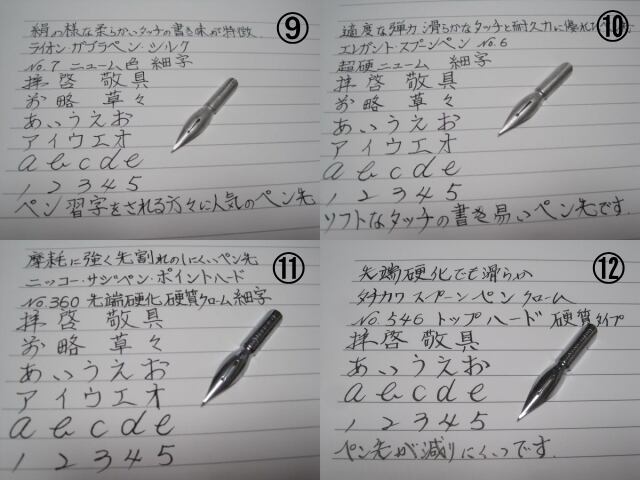 ⑨
絹の様な柔らかいタッチの書き味が特徴
ライオン・ガブラペン・シルク
No.7 ニューム色 細字
拝啓 敬具
前略 草々
あいうえお
アイウエオ
a b c d e
1 2 3 4 5
ペン習字をされる方々に人気のペン先
⑩
適度な弾力 滑らかなタッチと耐久力に優れた
エレガント・スプンペン No.6
超硬ニューム 細字
拝啓 敬具
前略 草々
あいうえお
アイウエオ
a b c d e
1 2 3 4 5
ソフトなタッチの書き易いペン先です.
⑪
摩耗に強く先割れのしにくいペン先
ニッコー・サジペン・ポイントハード
No.360 先端硬化 硬質クローム 細字
拝啓 敬具
前略 草々
あいうえお
アイウエオ
a b c d e
1 2 3 4 5
⑫
先端硬化でも滑らか
タチカワ スプーン ペン クローム
No.546 トップハード 硬質タイプ
拝啓 敬具
あいうえお
a b c d e
1 2 3 4 5
ペン先が減りにくいです.